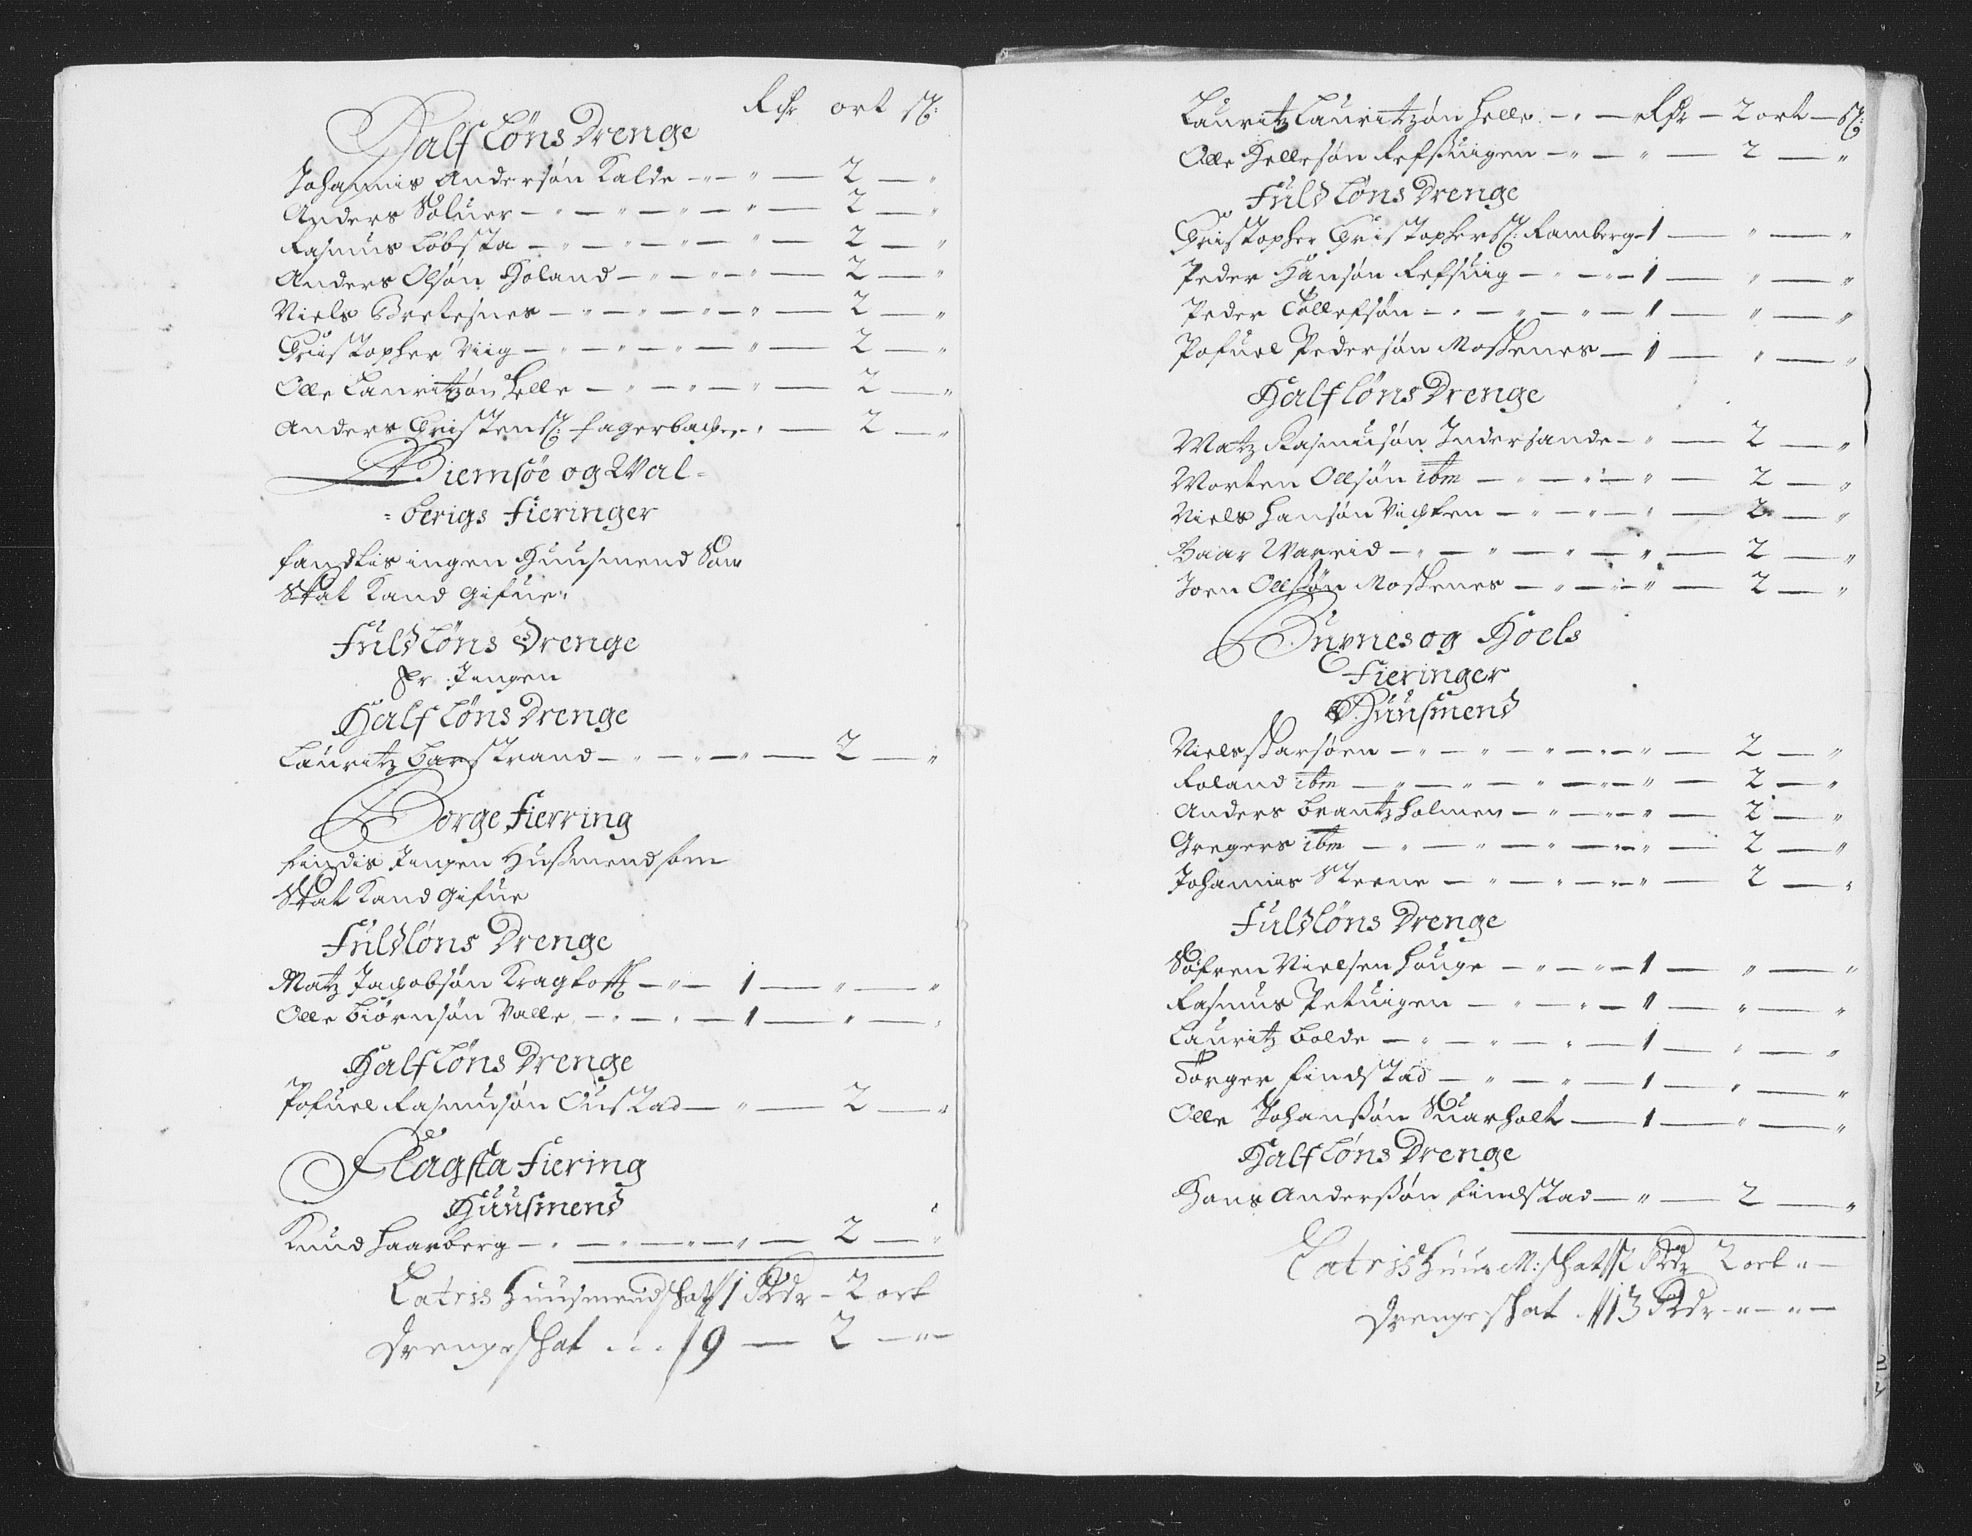 Rdr ort ß:
Half Løns Drenge
Johannis Andersøn Kalde — " — 2 — "
Anders Soluer — " — " — " — " — 2 — "
Rasmus Løbsta — " — " — " — " — 2 — "
Anders Olsøn Holand — " — " — " — 2 — "
Niels Bretesnes — " — " — " — " — 2 — "
Christopher Viig — " — " — " — " — 2 — "
Olle Lauritzøn Helle — " — " — " — 2 — "
Anders Christenß: Fagerbacher — 2 — "
Giemsøe og Wal=
=berigs Fieringer
Fandtis ingen Huusmend Som
Skat Kand Gifue:
Fuldløns Drenge
Er Jngen
Half Løns Drenge
Lauritz Barstrand — " — " — " — 2 — "
Borge Fierring
Findis Jngen Husmend som
Skat Kand Gifue
Fuldløns Drenge
Matz Jacobsøn Kragtoff — " — 1 — " — "
Olle Biørnsøn Valle — " — " — 1 — " — "
Half Løns Drenge
Pofuel Rasmusøn Oustad — " — 2 — "
Flagsta Fiering
Huusmend
Knud Haarberg — " — " — " — " — 2 — "
Latris Huusmendschat 1 Rdr — 2 ort
Drengeschat . . . 19 — 2 — " —
Lauritz Lauritzøn Helle — " — Rdr — 2 ort — ß:
Olle Hellesøn Refsuigen — " — " — 2 — "
Fuldløns Drenge
Christopher Christopherß: Ramberg — 1 — " — "
Peder Hansøn Refsuig — " — " — 1 — " — "
Peder Tollefsøn — " — " — " — 1 — " — "
Pofuel Pedersøn Moskenes — 1 — " — "
Half Løns Drenge
Matz Rasmusøn Indersande — " — 2 — "
Morten Ollsøn ibm — " — " — " — 2 — "
Niels Hansøn Vichten — " — " — " — 2 — "
Baar Wareid — " — " — " — " — 2 — "
Joen Ollsøn Moskenes — " — " — " — 2 — "
Burnes og Hoels
Fieringer
Huusmend
Niels Skarsøen — " — " — " — " — " — 2 — "
Roland ibm — " — " — " — " — " — 2 — "
Anders Brantzholmen — " — " — " — 2 — "
Gregers ibm — " — " — " — " — " — 2 — "
Johannis Steene — " — " — " — " — 2 — "
Fuldløns Drenge
Søfren Nielsen Houge — " — " — 1 — " — "
Rasmus Petuigen — " — " — 1 — " — "
Lauritz Bolde — " — " — " — 1 — " — "
Torger Findstad — " — " — 1 — " — "
Olle Johansøn Suarholt — 1 — " — "
Half Løns Drenge
Hans Andersøn Findstad — " — 2 — "
Latris Huus M: schat 2 Rdr 2 ort " —
Drengeschat . 13 Rdr — " — " —